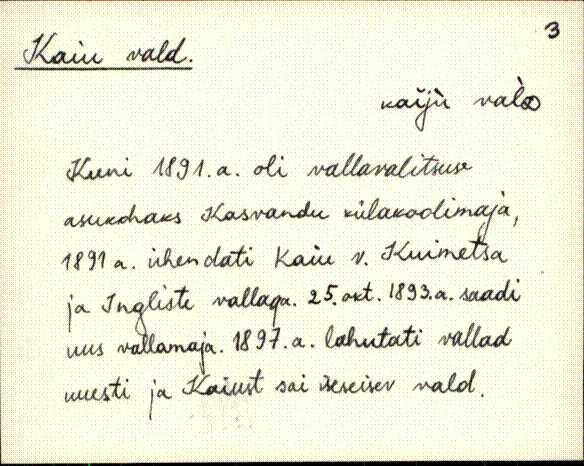 3
Kaiu vald.
kaĭju valD
Kuni 1891.a. oli vallavalitsuse
asukohaks Kasvandu külakoolimaja,
1891 a. ühendati Kaiu v. Kuimetsa
ja Ingliste vallaga. 25. okt. 1893.a. saadi
uus vallamaja. 1897.a. lahutati vallad
uuesti ja Kaiust sai iseseisev vald.